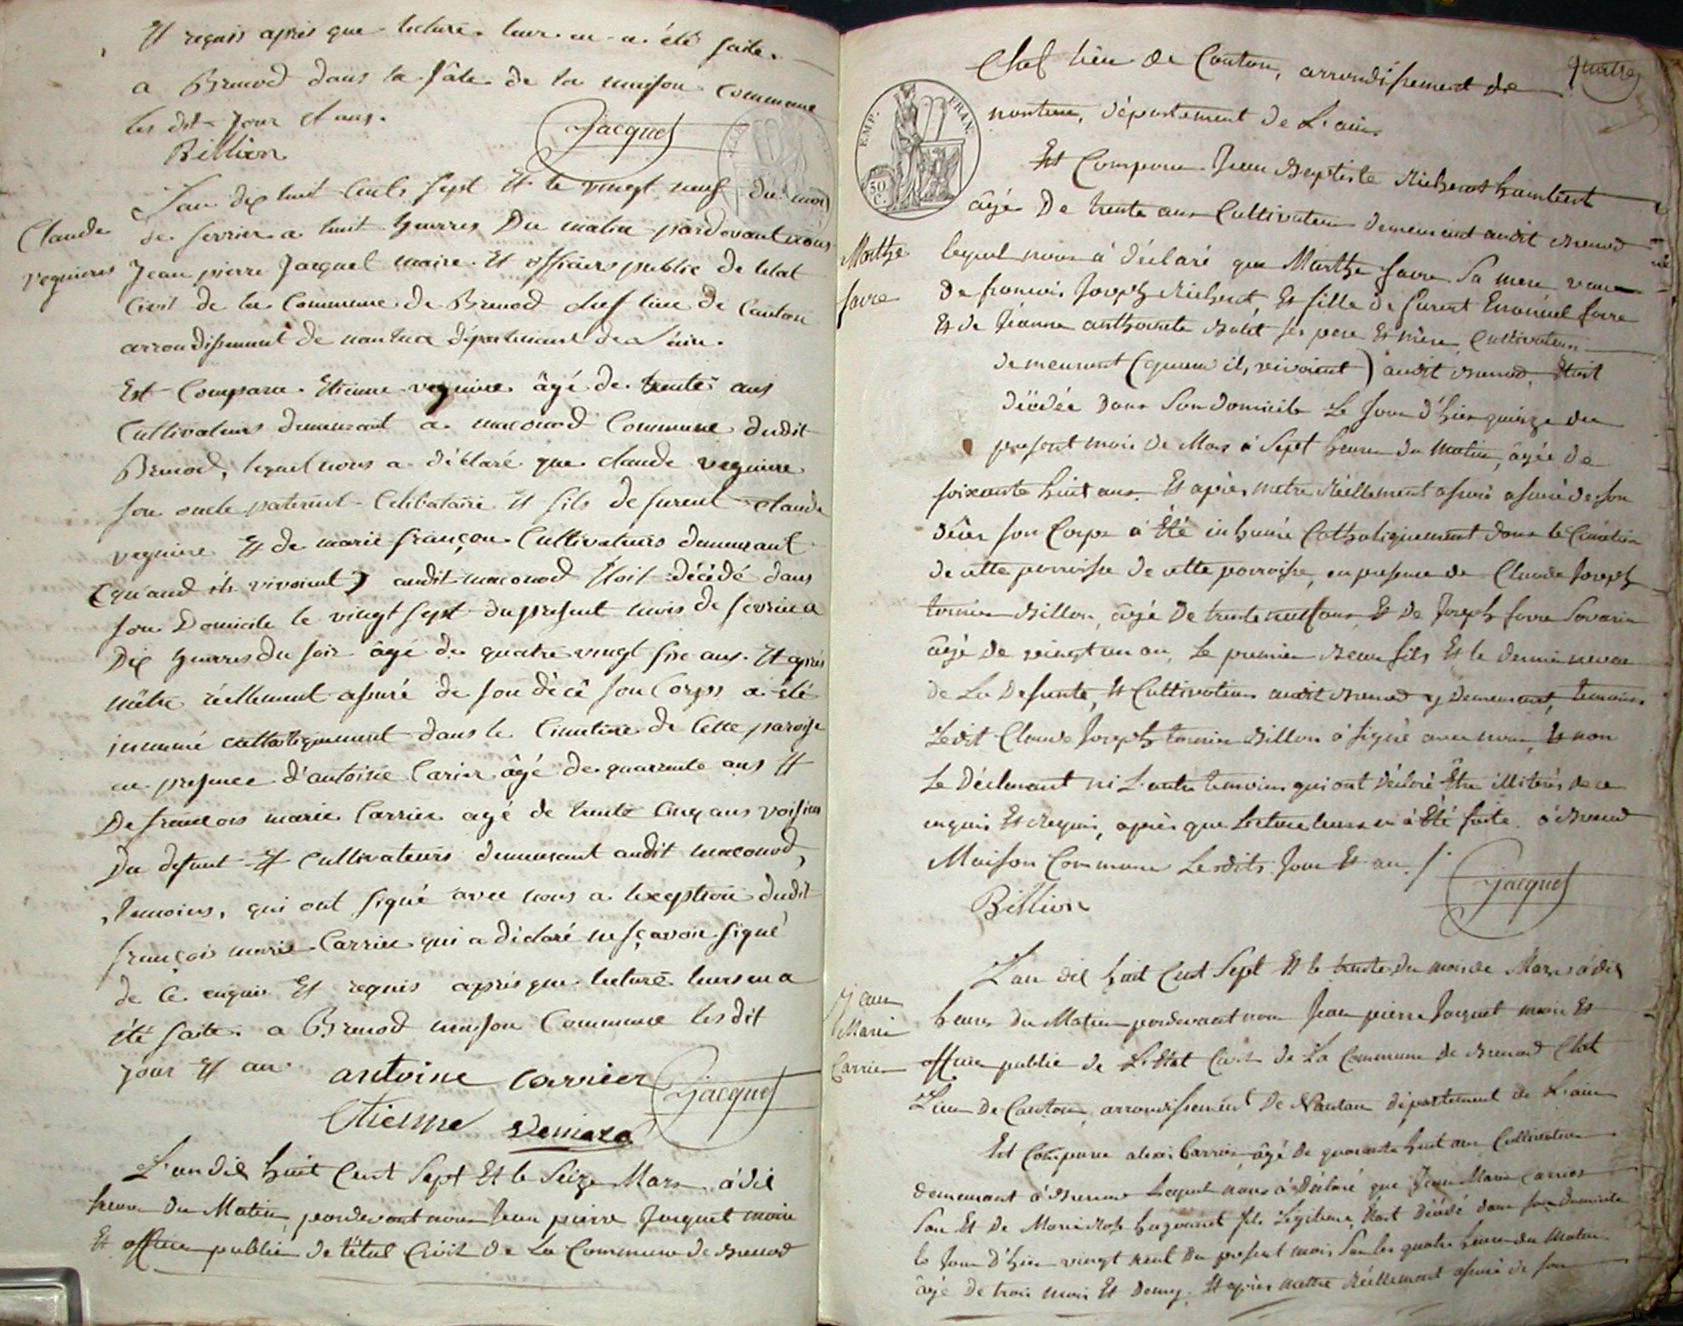 Et requis après que lecture leur en a été faite.
a Brenod dans la sale de la maison commune
les dit jour et an.
Billion Jacquet
Claude
veguiere
L'an dix huit cents sept Et le vingt neuf du mois
de fevrier a huit heurres Du matin pardevant nous
Jean pierre Jacquet maire Et officiers public de letat
Civil de la Commune de Brenod chef lieu de Canton
arrondissement de nantua département de L'ain.
Est Comparu Etienne veguiere âgé de trente ans
Cultivateurs demeurant a maconod Commune dudit
Brenod, lequel nous a déclaré que claude veguiere
son oncle paternel Celibataire Et fils de furent claude
veguiere Et de marie françon Cultivateurs demeurant
(quand ils vivoient) audit maconod Etoit décédé dans
son Domicile le vingt sept du present mois de fevrier a
Dix heurres du soir âgé de quatre vingt six ans. Et après
mêtre réellement assuré de son décè son Corps a été
innumé catholiquement dans le Cimetiere de Cette paroisse
en presence d'antoine Carier âgé de quarente ans Et
De francois marie Carrier agé de trente cinq ans voisins
Du defunt Et Cultivateurs demeurant audit maconod,
temoins, qui ont signé avec nous a lexeption dudit
françois marie Carrier qui a déclaré ne sçavoir signé
de Ce enquis Et requis après que lecture leurs en a
été faite. a Brenod maison Commune les dit
jour Et an. antoine carrier Jacquet
Etienne
L'an dix huit Cent Sept Et le Seize Mars à dix
heure du Matin, pardevant nous Jean pierre Jacquet maire
Et officier public de l'état Civil de La Commune de Brenod
quatre
Chef lieu de Canton, arrondissement de
nantua, département de L'ain
EMP. FRAN.
50 C.
Est Comparu Jean Baptiste Richerot humbert
âgé De trente ans Cultivateur demeurant audit Brenod
Marthe
favre
lequel nous à déclaré que Marthe favre Sa mere veuve
De francois Joseph Richerot Et fille de furent Emanuel favre
Et de Jeanne anthoinette Balét ses pere Et mere, Cultivateurs
demeurant (quand ils vivoient) audit Brenod, Etoit
décédée dans Son domicile Le Jour d'hier quinze du
present mois de Mars à Sept heures du Matin, âgée de
soixante huit ans. Et après metre réellement assuré assuré de son
décès son Corps à Eté inhumé Catholiquement dans le Cimetière
de cette parroisse de cette parroisse, en presence de Claude Joseph
tournier Billon, âgé De trente neuf ans, Et De Joseph favre Savarin
âgé de vingt un an, Le premier Beau fils Et le dernier neveu
de La Defunte, Et Cultivateurs audit Brenod y Demeurant, temoins
Ledit Claude Joseph tournier Billon à signé avec nous, Et non
Le Déclarant ni L'autre temoins qui ont déclaré Etre illiterés de ce
enquis Et Requis, après que Lecture leurs en à Eté faite. à Brenod
Maison Commune Lesdits Jour Et an. /.
Billion Jacquet
Jean
Marie
Carrier
L'an dix huit Cent Sept Et le trente du mois de Mars à dix
heures du Matin pardevant nous Jean pierre Jacquet maire Et
officier public de L'Etat Civil de La Commune de Brenod Chef
Lieu De Canton, arrondissement De Nantua, département de L'ain
Est Comparu alexi Carrier, âgé De quarante huit ans Cultivateur
demeurant à Brenod Lequel nous à Déclaré que Jean Marie Carrier
Son Et de Marie Rose hugonnet fils Légitime, Etoit Décédé dans son Domicile
le Jour D'hier vingt neuf Du present mois Sur les quatre heures du Matin
âgé De trois mois Et Demy. Et après mettre Réellement assuré de son